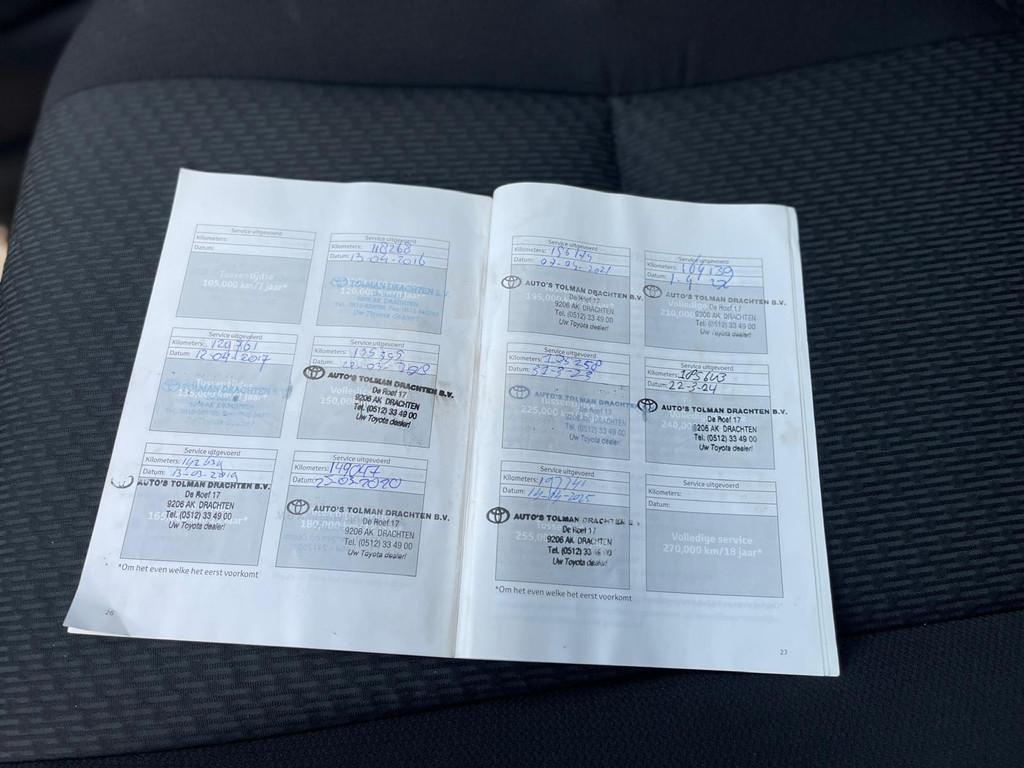 Service uitgevoerd
Kilometers:
Datum:
Tussentijdse
105,000 km/7 jaar*
Service uitgevoerd
Kilometers: 118268
Datum: 13-04-2016
TOLMAN DRACHTEN B.V.
120,000
Uw Toyota dealer!
Service uitgevoerd
Kilometers: 129761
Datum: 12-04-2017
TOLMAN DRACHTEN B.V.
Service uitgevoerd
Kilometers: 135395
Datum:
AUTO'S TOLMAN DRACHTEN B.V.
De Roef 17
9206 AK DRACHTEN
Tel. (0512) 33 49 00
Uw Toyota dealer!
Service uitgevoerd
Kilometers: 142634
Datum: 13-03-2019
AUTO'S TOLMAN DRACHTEN B.V.
De Roef 17
9206 AK DRACHTEN
Tel. (0512) 33 49 00
Uw Toyota dealer!
Service uitgevoerd
Kilometers: 149047
Datum: 25-03-2020
AUTO'S TOLMAN DRACHTEN B.V.
De Roef 17
180,000
9206 AK DRACHTEN
Tel. (0512) 33 49 00
Uw Toyota dealer!
*Om het even welke het eerst voorkomt
26
Service uitgevoerd
Kilometers: 156174
Datum: 2021
AUTO'S TOLMAN DRACHTEN B.V.
De Roef 17
195,000
9206 AK DRACHTEN
Tel. (0512) 33 49 00
Uw Toyota dealer!
Service uitgevoerd
Kilometers:
Datum: 1-4-22
AUTO'S TOLMAN DRACHTEN B.V.
De Roef 17
210,000
9206 AK DRACHTEN
Tel. (0512) 33 49 00
Uw Toyota dealer!
Service uitgevoerd
Kilometers:
Datum:
AUTO'S TOLMAN DRACHTEN
De Roef 17
225,000
9206 AK DRACHTEN
Tel. (0512) 33 49 00
Uw Toyota dealer!
Service uitgevoerd
Kilometers:
Datum: 22-3-24
AUTO'S TOLMAN DRACHTEN B.V.
De Roef 17
240,000
9206 AK DRACHTEN
Tel. (0512) 33 49 00
Uw Toyota dealer!
Service uitgevoerd
Kilometers:
Datum: 14-04-2025
AUTO'S TOLMAN DRACHTEN B.V.
De Roef 17
255,000
9206 AK DRACHTEN
Tel. (0512) 33 49 00
Uw Toyota dealer!
Service uitgevoerd
Kilometers:
Datum:
Volledige service
270,000 km/18 jaar*
*Om het even welke het eerst voorkomt
27